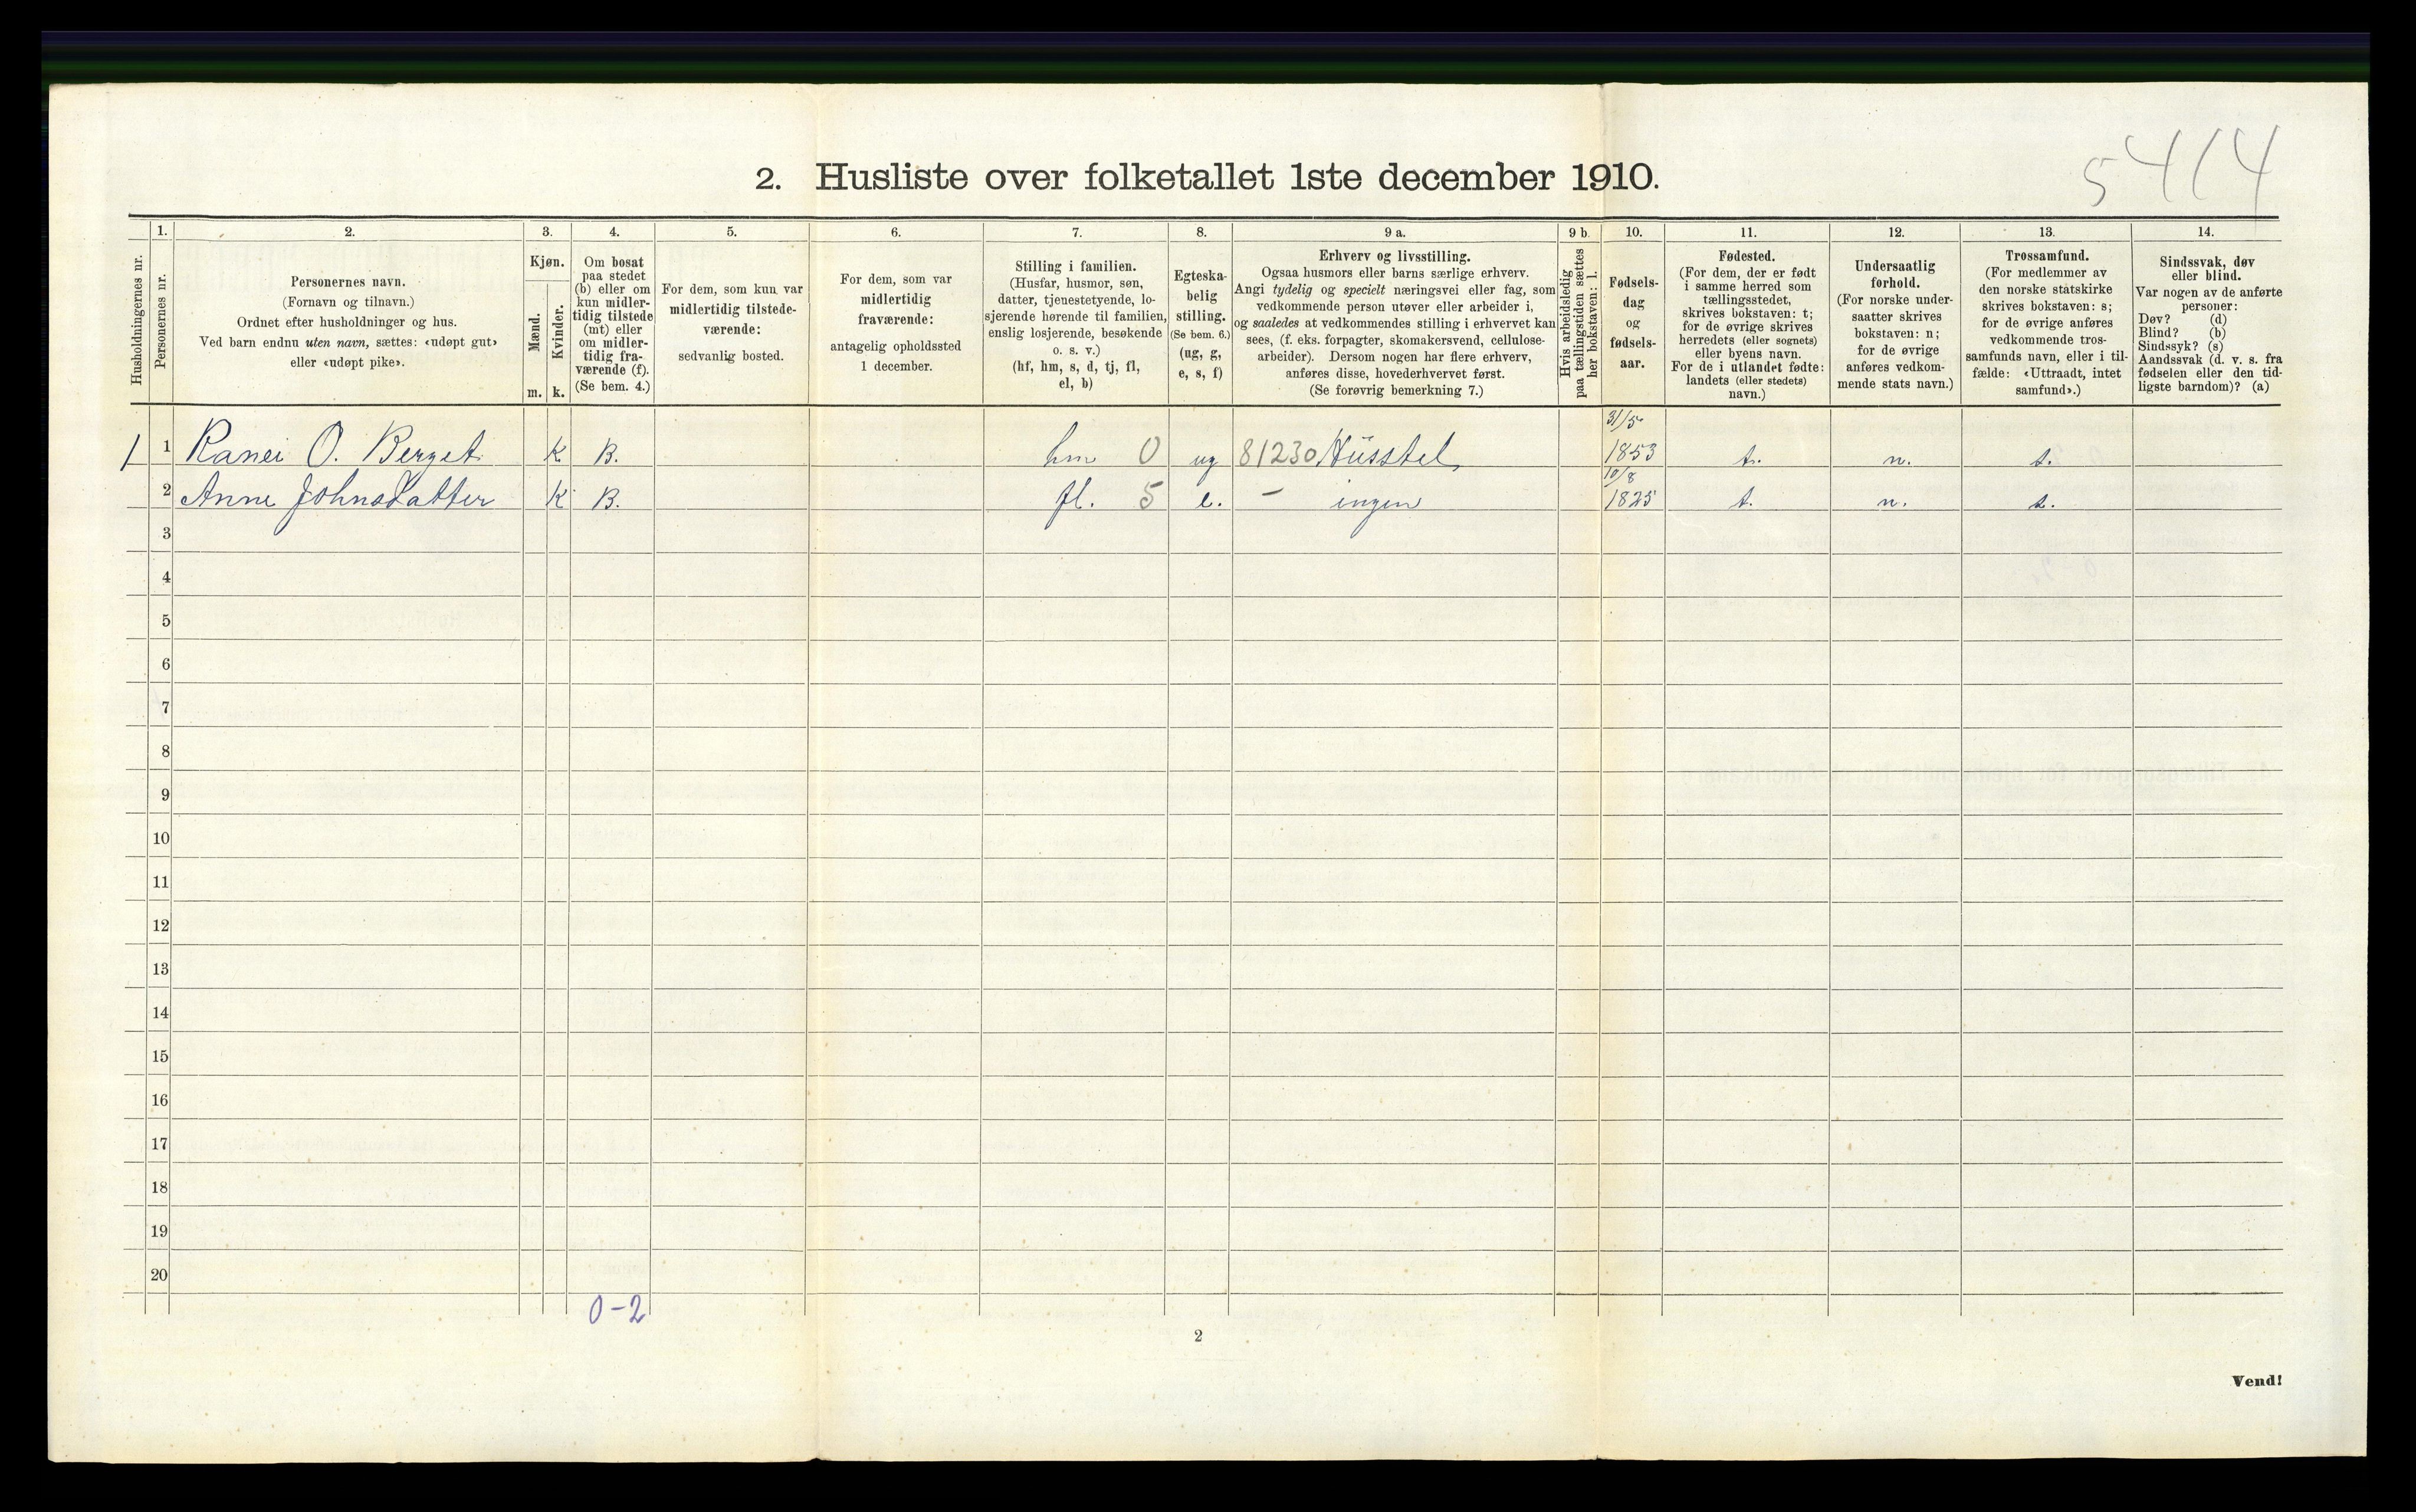 5414
2. Husliste over folketallet 1ste december 1910.
Husholdningernes nr.
1.
Personernes nr.
2.
Personernes navn.
(Fornavn og tilnavn.)
Ordnet efter husholdninger og hus.
Ved barn endnu uten navn, sættes: «udøpt gut»
eller «udøpt pike».
3.
Kjøn.
Mænd.
m.
Kvinder.
k.
4.
Om bosat
paa stedet
(b) eller om
kun midler-
tidig tilstede
(mt) eller
om midler-
tidig fra-
værende (f).
(Se bem. 4.)
5.
For dem, som kun var
midlertidig tilstede-
værende:
sedvanlig bosted.
6.
For dem, som var
midlertidig
fraværende:
antagelig opholdssted
1 december.
7.
Stilling i familien.
(Husfar, husmor, søn,
datter, tjenestetyende, lo-
sjerende hørende til familien,
enslig losjerende, besøkende
o. s. v.)
(hf, hm, s, d, tj, fl,
el, b)
8.
Egteska-
belig
stilling.
(Se bem. 6.)
(ug, g,
e, s, f)
9 a.
Erhverv og livsstilling.
Ogsaa husmors eller barns særlige erhverv.
Angi tydelig og specielt næringsvei eller fag, som
vedkommende person utøver eller arbeider i,
og saaledes at vedkommendes stilling i erhvervet kan
sees, (f. eks. forpagter, skomakersvend, cellulose-
arbeider). Dersom nogen har flere erhverv,
anføres disse, hovederhvervet først.
(Se forøvrig bemerkning 7.)
9 b.
Hvis arbeidsledig
paa tællingstiden sættes
her bokstaven: l.
10.
Fødsels-
dag
og
fødsels-
aar.
11.
Fødested.
(For dem, der er født
i samme herred som
tællingsstedet,
skrives bokstaven: t;
for de øvrige skrives
herredets (eller sognets)
eller byens navn.
For de i utlandet fødte:
landets (eller stedets)
navn.)
12.
Undersaatlig
forhold.
(For norske under-
saatter skrives
bokstaven: n;
for de øvrige
anføres vedkom-
mende stats navn.)
13.
Trossamfund.
(For medlemmer av
den norske statskirke
skrives bokstaven: s;
for de øvrige anføres
vedkommende tros-
samfunds navn, eller i til-
fælde: «Uttraadt, intet
samfund».)
14.
Sindssvak, døv
eller blind.
Var nogen av de anførte
personer:
Døv? (d)
Blind? (b)
Sindssyk? (s)
Aandssvak (d. v. s. fra
fødselen eller den tid-
ligste barndom)? (a)
1 1 Ranei O. Berget K B. hm 0 ug 81230 Hüsstel 31/5 1853 t. n. s.
2 Anne Johnsdatter K B. fl. 5 e. – ingen 10/8 1825 t. n. s.
3
4
5
6
7
8
9
10
11
12
13
14
15
16
17
18
19
20
0-2
2
Vend!